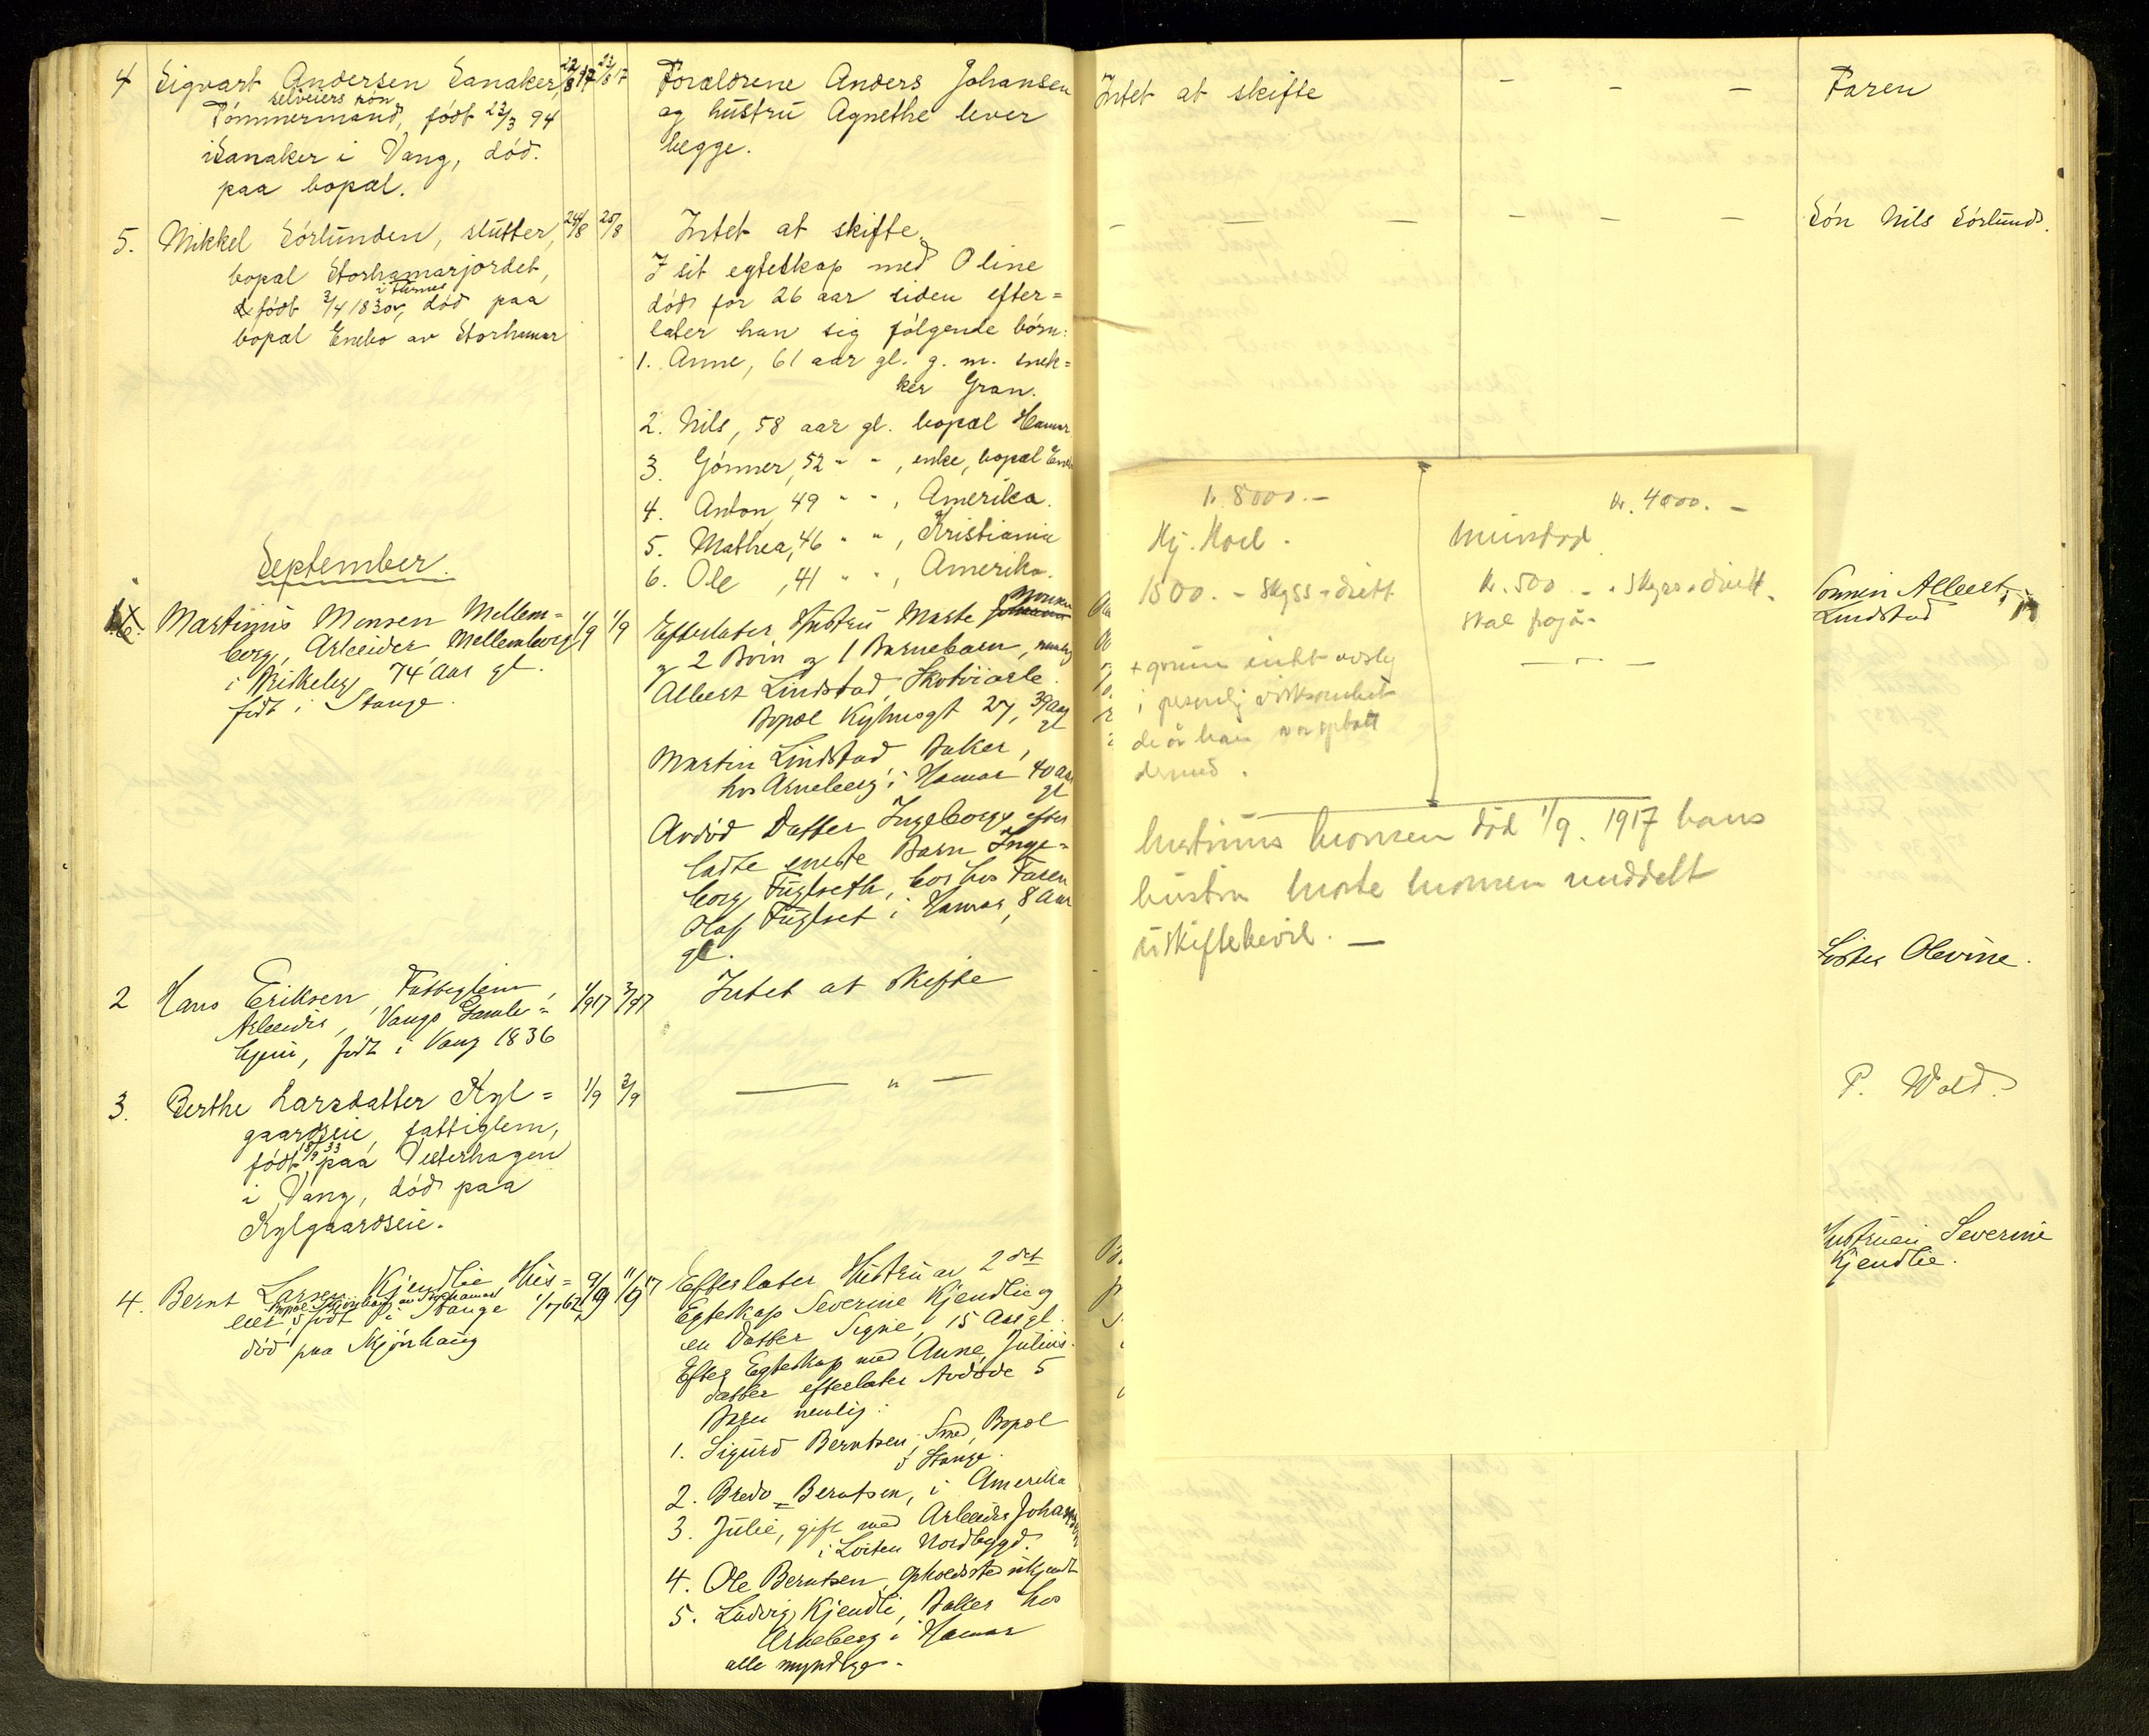 4 Sigvart Andersen Sanaker, 22/8 17 23/8 17
selveiers søn
Tømmermand, født 23/3 94
i Sanaker i Vang, død.
paa bopæl.
Forældrene Anders Johansen
og hustru Agnethe lever
begge.
Intet at skifte — — —
Faren
5. Mikkel Sørlunden, slutter, 24/8 25/8
bopal Storhamarjordet,
født 3/4 1830 i Furnes, død paa
bopal Enebo av Storhamar
Intet at skifte.
I sit egteskap med Oline
død for 26 aar siden efter=
later han sig følgende børn:
1. Anne, 61 aar gl. g. m. snek=
ker Gran.
2. Nils, 58 aar gl. bopæl Hamar
3. Gønner, 52 " ", enke, bopæl
4. Anton, 49 " ", Amerika.
5. Mathea, 46 " ", Kristiania
6. Ole, 41 " ", Amerika.
— — — — — — —
Søn Nils Sørlund.
September.
1. Martinus Monsen Mellem= 1/9 1/9
borg, Arbeider Mellemborg
i Birkeby 74 Aar gl.
født i Stange.
Efterlater Hustru Marte Monsen
og 2 Børn og 1 Barnebarn, nemlig
Albert Lindstad,
Bopæl Kyhnsgt 27, 39 Aar
gl
Martin Lindstad, Baker,
hos Arneberg i Hamar 40 Aar
gl
Avdød Datter Ingeborg efter
ladte eneste Barn Inge=
borg Fuglseth, bor hos Faren
Olaf Fuglset i Hamar, 8 Aar
gl.
Sønnen Albert
Lindstad
2 Hans Eriksen, Fattiglem, 1/9 17 3/9 17
Arbeider, Vangs Gamle=
hjem, født i Vang 1836
Intet at skifte
Søster Olevine.
3. Berthe Larsdatter Kyl= 1/9 3/9
gaardseie, fattiglem,
født 18/9 33 paa Vesterhagen
i Vang, død paa
Kylgaardseie.
— " —
P. Wold.
4. Bernt Larsen Kjendlie, Hus= 9/9 11/9 17
eier, født i Stange 1/7 62
død paa Skjønhaug
Efterlater Hustru av 2det
Egteskap Severine Kjendlie og
en Datter Signe, 15 Aar gl.
Efter Egteskap med Anne Julius
datter efterlater Avdøde 5
Barn nemlig:
1. Sigurd Berntsen, Smed, Bopæl
i Stange.
2. Bredo Berntsen, i Amerika
3. Julie, gift med Arbeider Johansen
i Løiten Nordbygd.
4. Ole Berntsen, Opholdssted ukjendt
5. Ludvig Kjendli, Baker hos
Arneberg i Hamar
alle myndige.
Hustruen Severine
Kjendlie.
kr. 8000.—
Hj. Moel.
1500.— Skyss + diett
i virksomhet
dermed.
kr. 4000.—
kr. 500 — Skyss + diett.
Skal frogå.
— — —
Martinus Monsen død 1/9. 1917 hans
hustru Marte Monsen meddelt
uskiftebevil. —